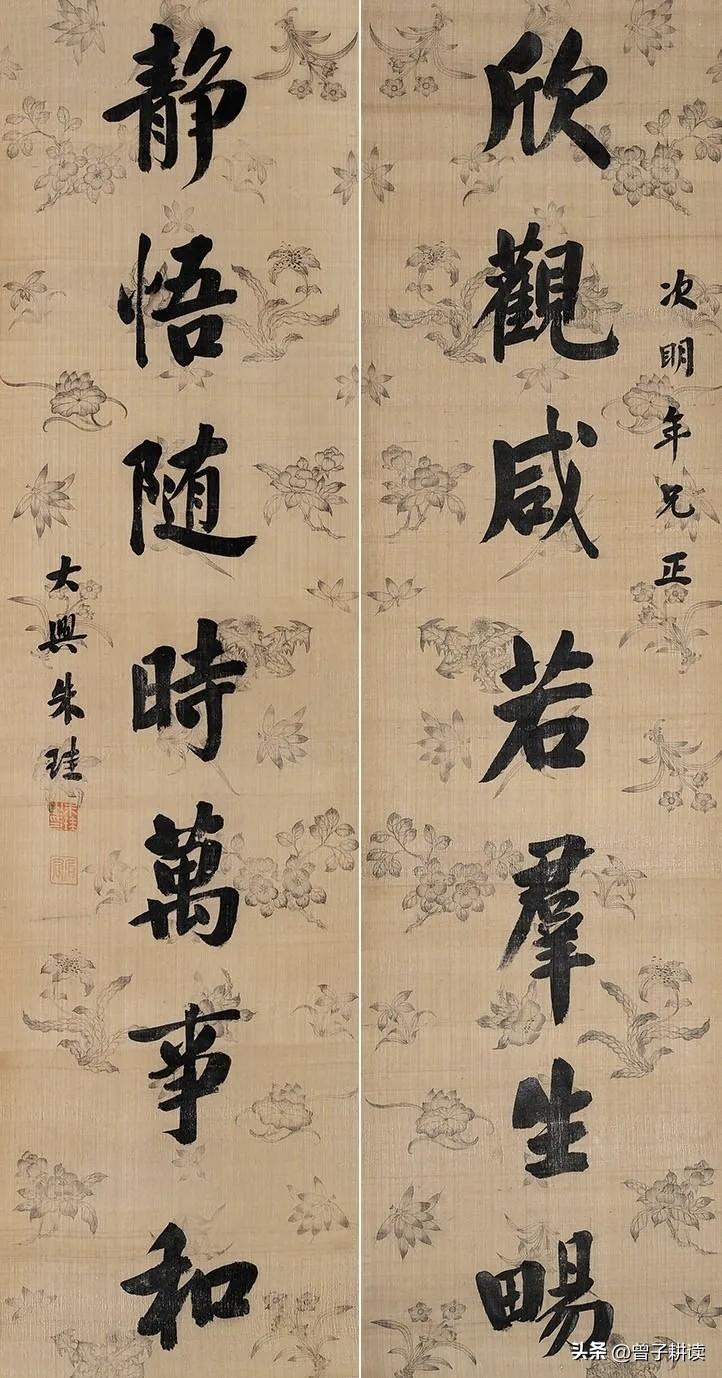 次明年兄正
欣觀咸若羣生畼
静悟随時萬事和
大興朱珪
头条 @曾子耕读